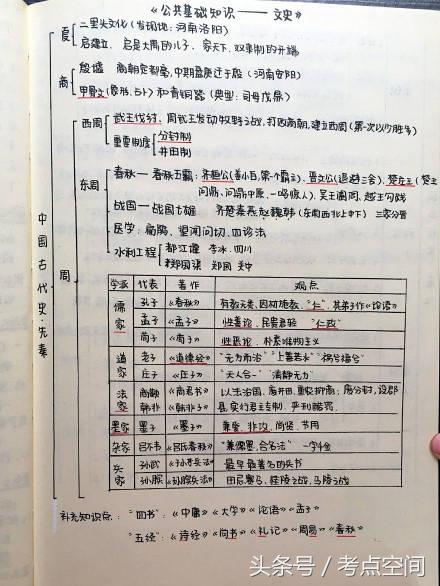 《公共基础知识——文史》
夏
二里头文化(发现地:河南洛阳)
启建立,启是大禹的儿子,家天下,双重制的开端
商
殷墟 商朝定都亳,中期盘庚迁于殷(河南安阳)
甲骨文(象形,占卜)和青铜器(典型:司母戊鼎)
中国古代史·先秦
周
西周
武王伐纣:周武王发动牧野之战,打败商朝,建立西周(第一次以少胜多)
重要制度
分封制
井田制
东周
春秋—春秋五霸:齐桓公(姜小白,第一个霸主),晋文公(退避三舍),楚庄王(楚王
问鼎,问鼎中原,一鸣惊人),吴王阖闾,越王勾践
战国—战国七雄 齐楚秦燕赵魏韩(东南西北上中下) 三家分晋
医学:扁鹊,望闻问切,四诊法
水利工程
都江堰 李冰 四川
郑国渠 郑国 关中
学派 代表 著作 观点
儒家
孔子 《春秋》 有教无类,因材施教,"仁",其弟子作《论语》
孟子 《孟子》 性善论,民贵君轻 "仁政"
荀子 《荀子》 性恶论,朴素唯物主义
道家
老子 《道德经》 "无为而治""上善若水""祸兮福兮"
庄子 《庄子》 "天人合一" 清静无为
法家
商鞅 《商君书》 以法治国,废井田,重农抑商;废分封,设郡
韩非 《韩非子》 县,实行君主专制,严刑酷罚
墨家 墨子 《墨子》 兼爱,非攻,尚贤,节用
杂家 吕不韦 《吕氏春秋》 "兼儒墨,合名法" 一字千金
兵家
孙武 《孙子兵法》 最早最著名的兵书
孙膑 《孙膑兵法》 田忌赛马,桂陵之战,马陵之战
补充知识点:"四书":《中庸》《大学》《论语》《孟子》
"五经":《诗经》《尚书》《礼记》《周易》《春秋》
头条号/考点空间